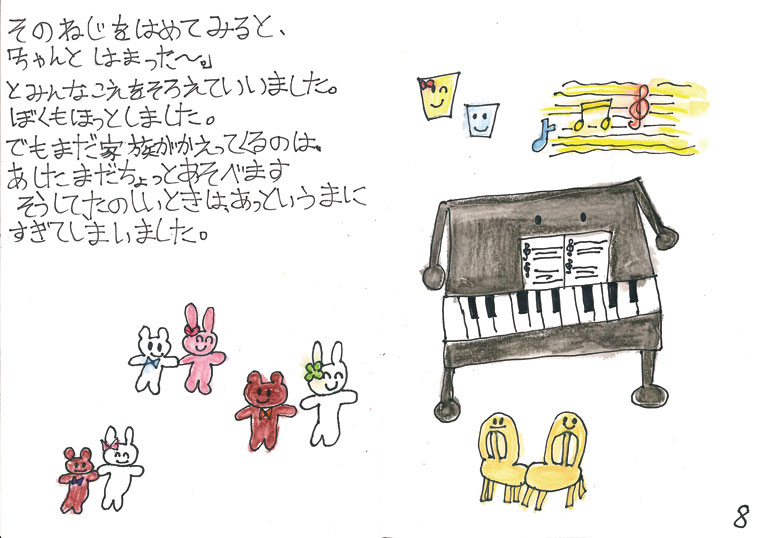 そのねじをはめてみると、
「ちゃんと はまった〜。」
とみんなこえをそろえていいました。
ぼくもほっとしました。
でもまだ家族がかえってくるのは、
あしたまだちょっとあそべます
そうしてたのしいときは、あっというまに
すぎてしまいました。
8